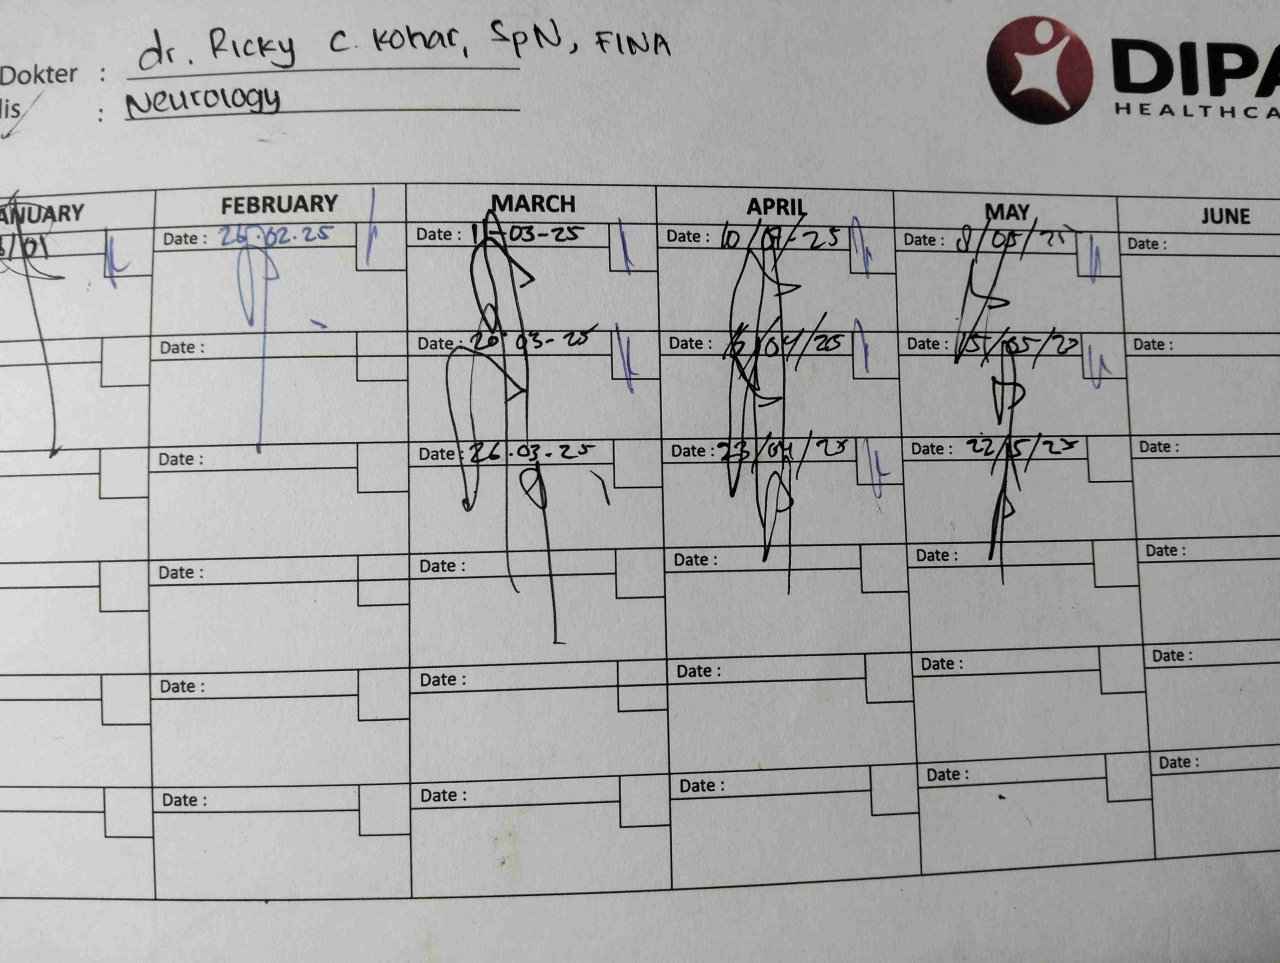 dr. Ricky C. Kohar, SpN, FINA
Dokter :
Neurology
lis :
DIPA
HEALTHCA
ANUARY FEBRUARY MARCH APRIL MAY JUNE
/01 Date : 26.02.25 Date : -03-25 Date : 10/04-25 Date : 8/05/25 Date :
Date : Date : 20-03-25 Date : /04/25 Date : 15/05/25 Date :
Date : Date : 26-03-25 Date : 23/04/25 Date : 22/5/25 Date :
Date : Date : Date : Date : Date :
Date : Date : Date : Date : Date :
Date : Date : Date : Date : Date :